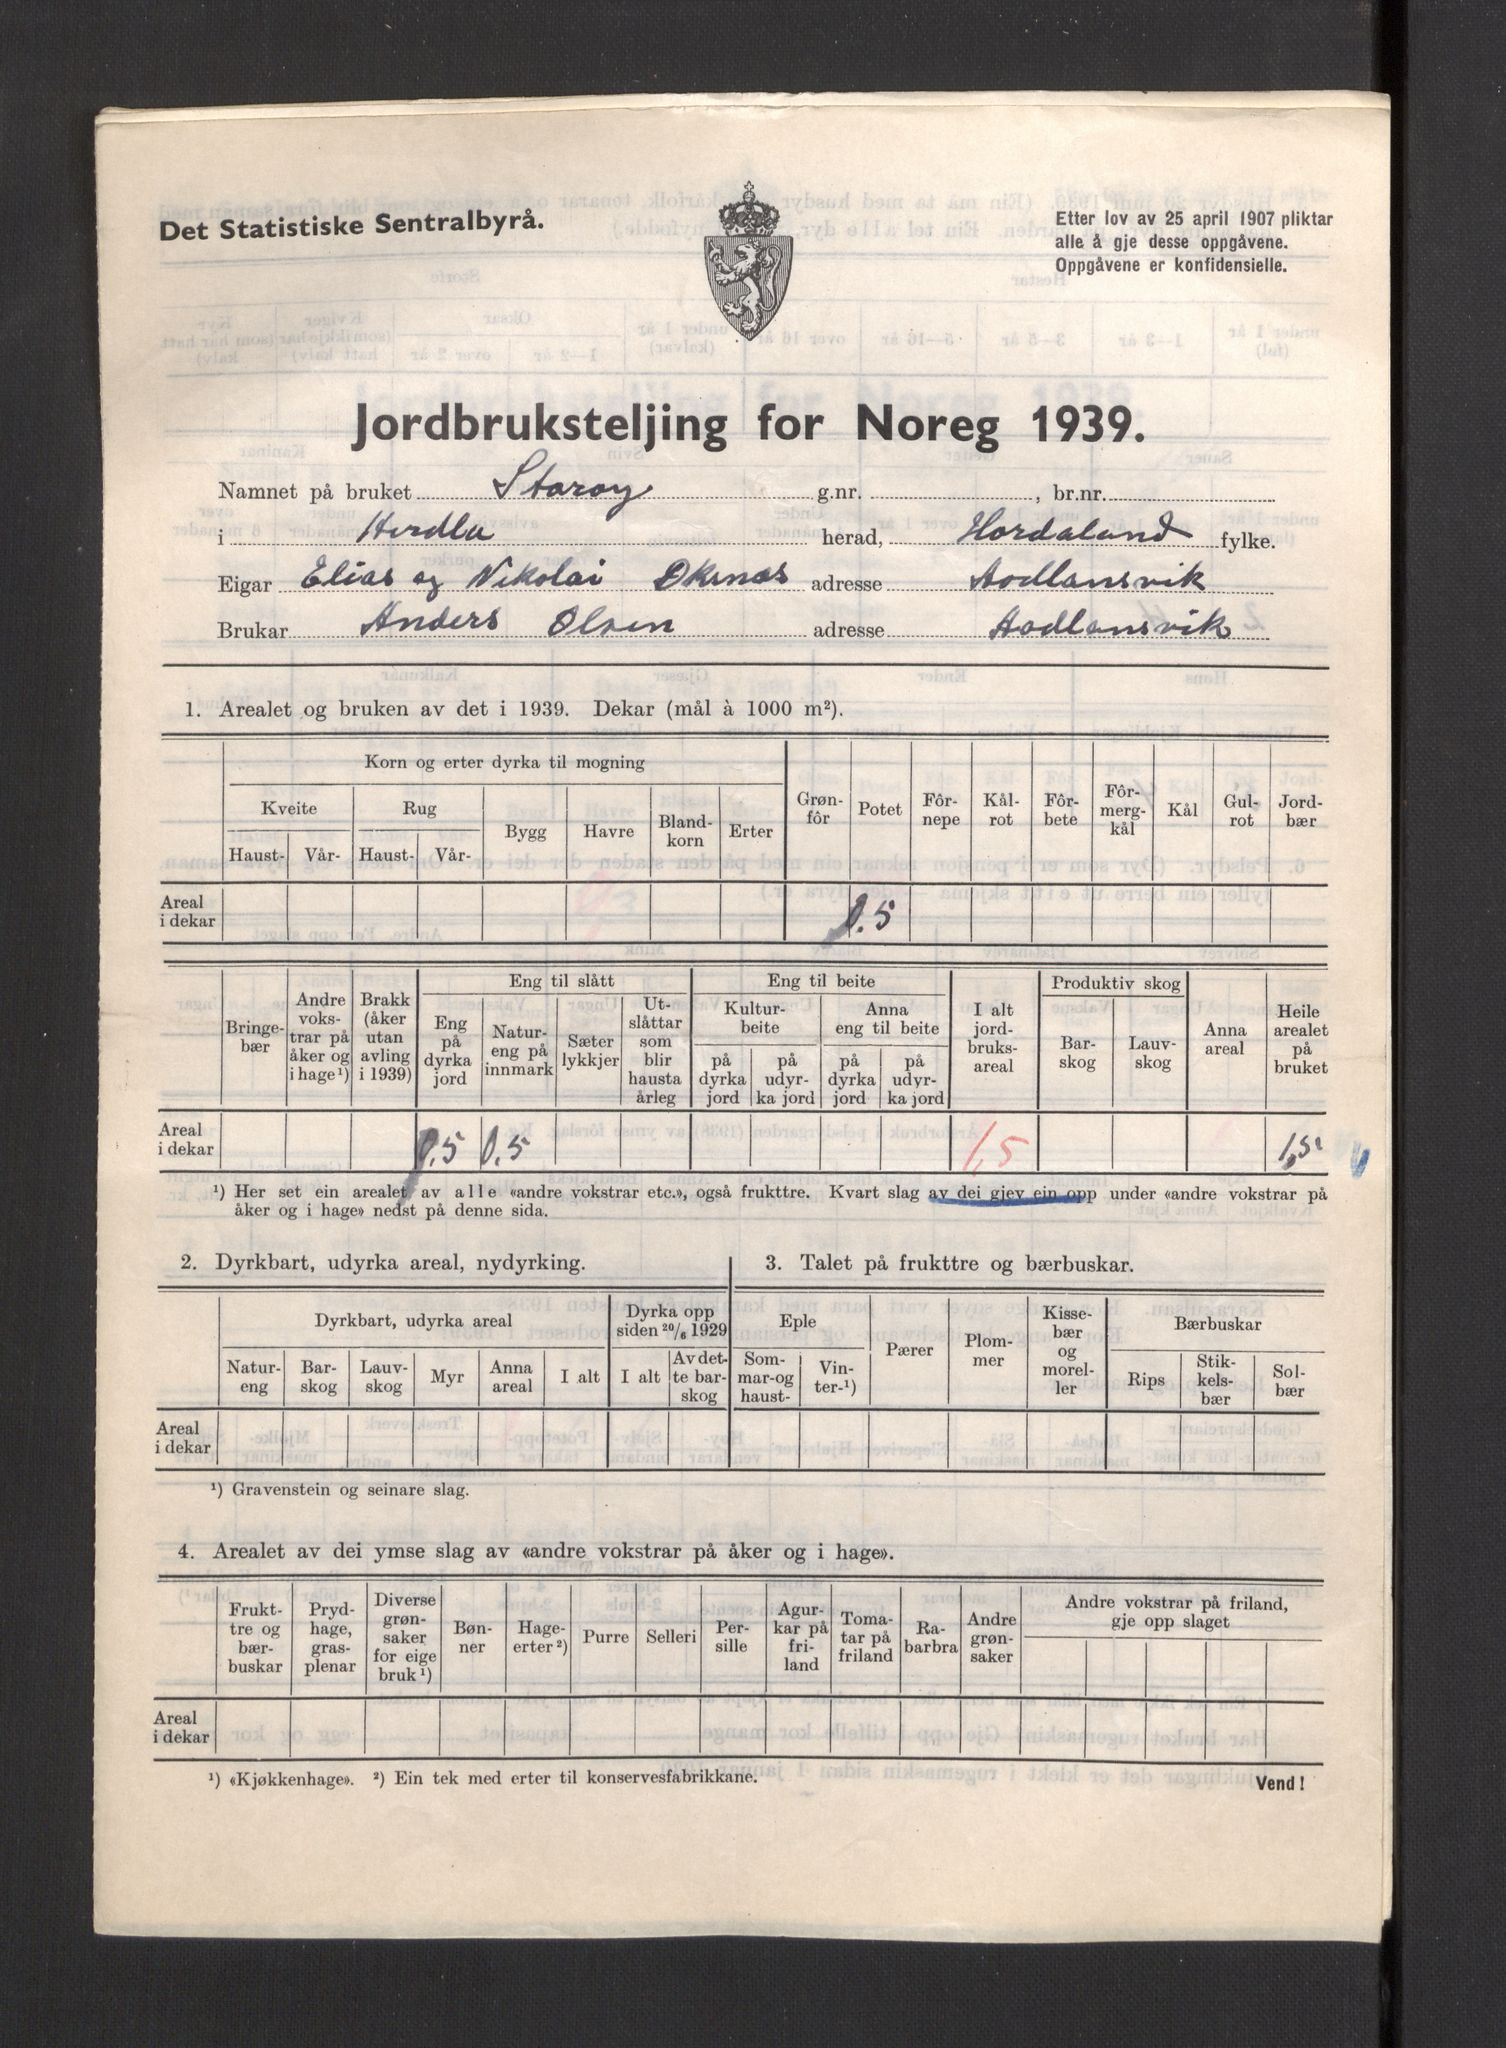 Det Statistiske Sentralbyrå.
Etter lov av 25 april 1907 pliktar
alle å gje desse oppgåvene.
Oppgåvene er konfidensielle.
Jordbruksteljing for Noreg 1939.
Namnet på bruket Storøy g.nr. , br.nr.
i Herdla herad, Hordaland fylke.
Eigar Elias og Nikolai Øksnes adresse Aadlansvik
Brukar Anders Olsen adresse Aadlansvik
1. Arealet og bruken av det i 1939. Dekar (mål à 1000 m²).
Korn og erter dyrka til mogning
Kveite Rug Bygg Havre Blandkorn Erter
Haust- Vår- Haust- Vår-
Grønfôr Potet Fôrnepe Kålrot Fôrbete Fôrmergkål Kål Gulrot Jordbær
Areal i dekar 0.5
Bringebær
Andre vokstrar på åker og i hage¹)
Brakk (åker utan avling i 1939)
Eng til slått
Eng på dyrka jord
Natureng på innmark
Sæterlykkjer
Utslåttar som blir hausta årleg
Eng til beite
Kulturbeite
på dyrka jord
på udyrka jord
Anna eng til beite
på dyrka jord
på udyrka jord
I alt jordbruksareal
Produktiv skog
Barskog
Lauvskog
Anna areal
Heile arealet på bruket
Areal i dekar 0.5 0.5 1,5 1,5
¹) Her set ein arealet av alle «andre vokstrar etc.», også frukttre. Kvart slag av dei gjev ein opp under «andre vokstrar på
åker og i hage» nedst på denne sida.
2. Dyrkbart, udyrka areal, nydyrking.
Dyrkbart, udyrka areal
Dyrka opp siden 20/6 1929
Natureng Barskog Lauvskog Myr Anna areal I alt I alt Av dette barskog
Areal i dekar
3. Talet på frukttre og bærbuskar.
Eple
Sommar-og haust- Vinter-¹)
Pærer Plommer Kissebær og moreller
Bærbuskar
Rips Stikkelsbær Solbær
¹) Gravenstein og seinare slag.
4. Arealet av dei ymse slag av «andre vokstrar på åker og i hage».
Frukttre og bærbuskar
Prydhage, grasplenar
Diverse grønsaker for eige bruk¹)
Bønner
Hageerter²)
Purre
Selleri
Persille
Agurkar på friland
Tomatar på friland
Rabarbra
Andre grønsaker
Andre vokstrar på friland,
gje opp slaget
Areal i dekar
¹) «Kjøkkenhage». ²) Ein tek med erter til konservesfabrikkane.
Vend!